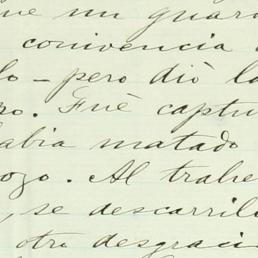 ue un guar
convivencia
lo - pero dió la
po. Fué captu
abia matado
ozo. Al trabe
, se descarril
otra desgraci